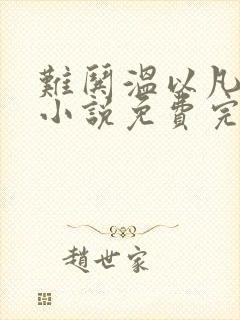 難鬨溫以凡
小說免費完
趙世家